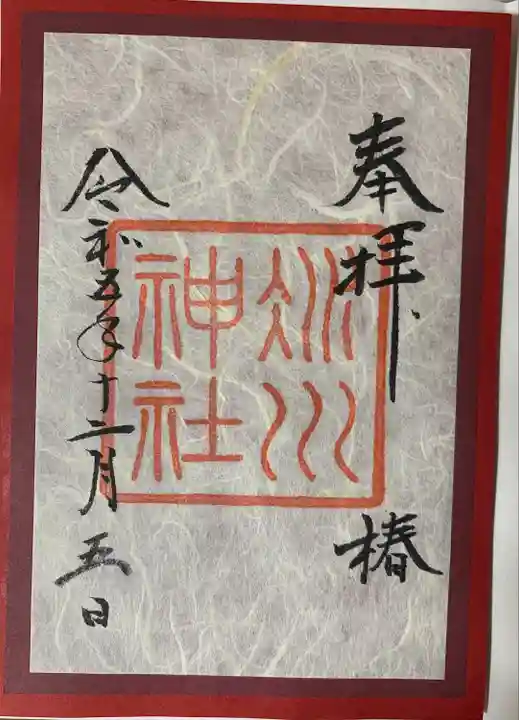 奉拝
椿
冰川
神社
令和五年十二月五日